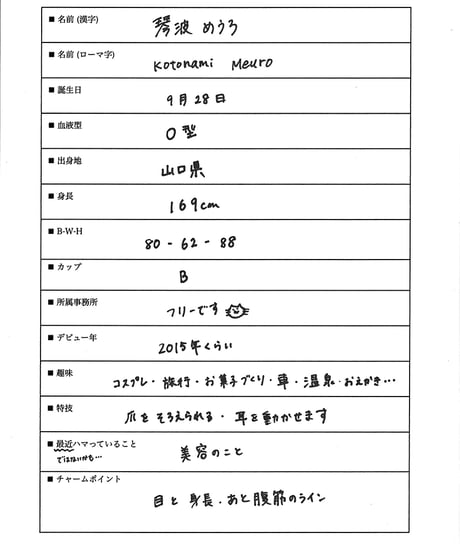 ■ 名前 (漢字) 琴波 めうろ
■ 名前 (ローマ字) Kotonami Meuro
■ 誕生日 9月28日
■ 血液型 O型
■ 出身地 山口県
■ 身長 169cm
■ B-W-H 80 - 62 - 88
■ カップ B
■ 所属事務所 フリーです
■ デビュー年 2015年くらい
■ 趣味 コスプレ・旅行・お菓子づくり・車・温泉・おえかき…
■ 特技 爪をそろえられる・耳を動かせます
■ 最近ハマっていること 美容のこと
ではないかも…
■ チャームポイント
目と身長、あと腹筋のライン